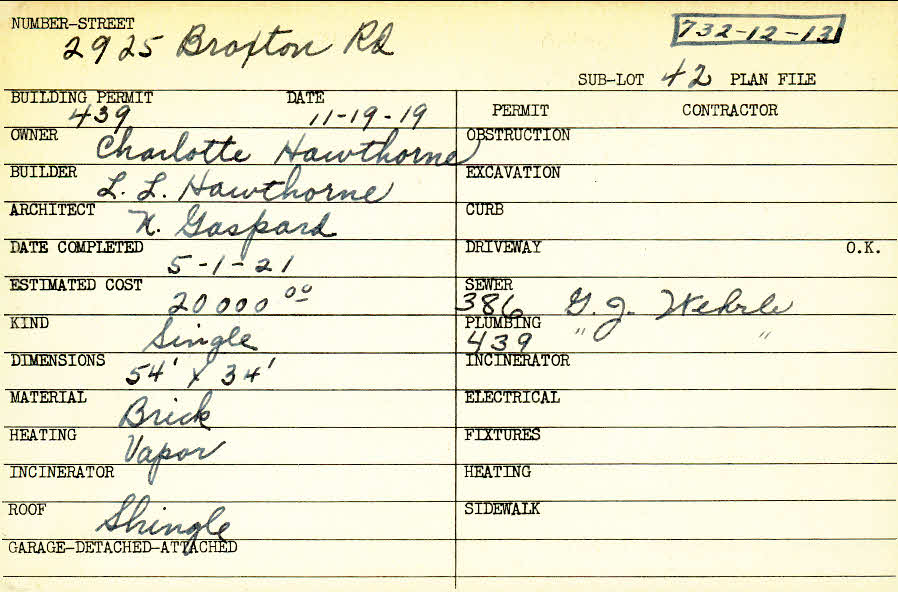 NUMBER-STREET
2925 Braxton Rd
732-12-13
SUB-LOT 42 PLAN FILE
BUILDING PERMIT DATE
439 11-19-19
PERMIT CONTRACTOR
OWNER Charlotte Hawthorne
OBSTRUCTION
BUILDER L. L. Hawthorne
EXCAVATION
ARCHITECT N. Gaspard
CURB
DATE COMPLETED
5-1-21
DRIVEWAY O.K.
ESTIMATED COST
20000 00
SEWER
386 G. J. Wehrle
KIND Single
PLUMBING
439 " "
DIMENSIONS 54' x 34'
INCINERATOR
MATERIAL Brick
ELECTRICAL
HEATING Vapor
FIXTURES
INCINERATOR
HEATING
ROOF Shingle
SIDEWALK
GARAGE-DETACHED-ATTACHED